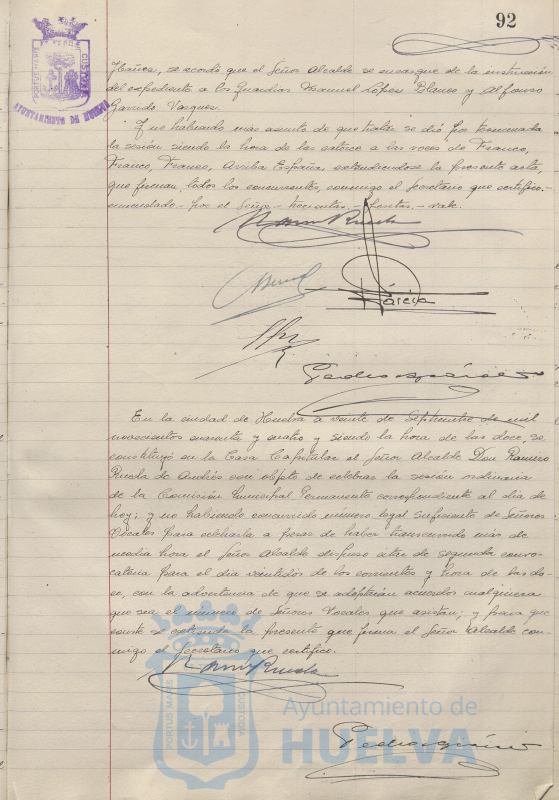 92
PORTUS MARIS
CUSTODIA
AYUNTAMIENTO DE HUELVA
Ibáñez, se acordó que el Señor Alcalde se encargue de la instrucción
del expediente a los Guardias Manuel López Blanco y Alfonso
Garrido Vazquez.
Y no habiendo mas asunto de que tratar se dió por terminada
la sesión siendo la hora de las catorce a las voces de Franco,
Franco, Franco, Arriba España, extendiendose la presente acta,
que firman, todos los concurrentes, conmigo el Secretario que certifico.-
enmendado - por el Señor - trescientas - - vale.
Ramiro Rueda
García
En la ciudad de Huelva a veinte de Septiembre de mil
novecientos cuarenta y cuatro y siendo la hora de las doce, se
constituyó en la Casa Capitular el Señor Alcalde Don Ramiro
Rueda de Andrés con objeto de celebrar la sesión ordinaria
de la Comisión Municipal Permanente correspondiente al dia de
hoy; y no habiendo concurrido número legal suficiente de Señores
Vocales para celebrarla a pesar de haber transcurrido más de
media hora el Señor Alcalde dispuso citar de segunda convo-
catoria para el dia veintidos de los corrientes y hora de las do-
ce, con la advertencia de que se adoptarán acuerdos cualquiera
que sea el número de Señores Vocales que asistan; y para que
conste se extiende la presente que firma el Señor Alcalde con-
migo el Secretario que certifico.
Ramiro Rueda
PORTUS MARIS
CUSTODIA
Ayuntamiento de
HUELVA